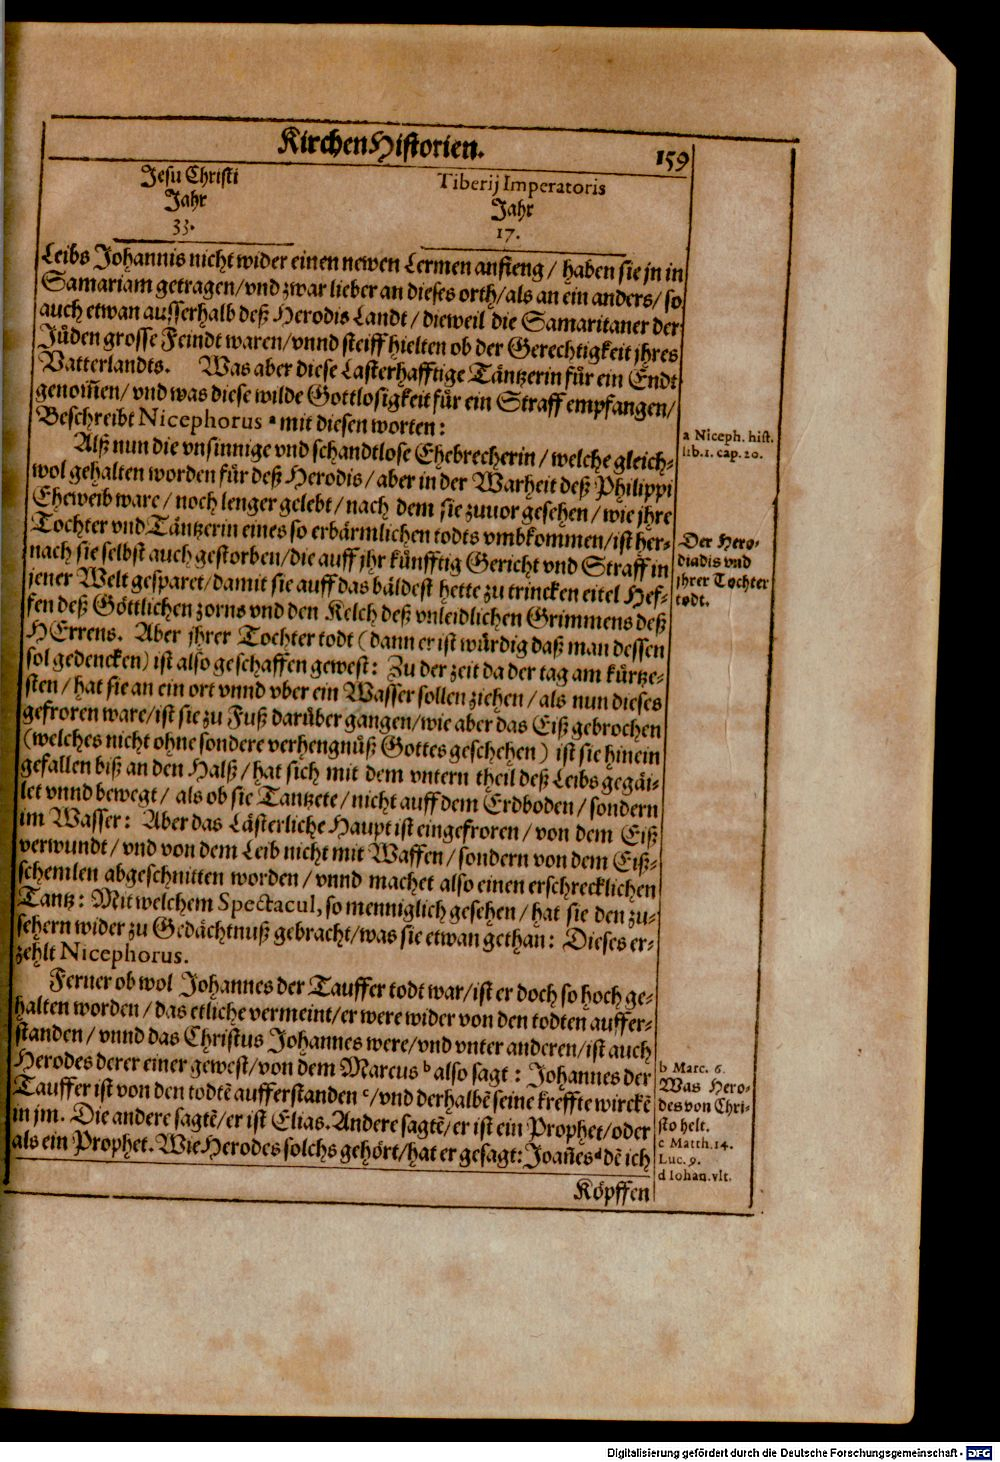 KirchenHistorien. 159
Jesu Christi
Jahr
33.
Tiberij Imperatoris
Jahr
17.
Leibs Johannis nicht wider einen newen Lermen anfieng / haben sie jn in
Samariam getragen/vnd zwar lieber an dieses orth/als an ein anders/ so
auch etwan ausserhalb deß Herodis Landt / dieweil die Samaritaner der
Jüden grosse Feindt waren/vnnd steiff hielten ob der Gerechtigkeit jhres
Vatterlandts. Was aber diese Lasterhafftige Täntzerin für ein Endt
genom̄en/ vnd was diese wilde Gottlosigkeit für ein Straff empfangen/
Beschreibt Nicephorus a mit diesen worten:
Alß nun die vnsinnige vnd schandtlose Ehebrecherin / welche gleich-
wol gehalten worden für deß Herodis / aber in der Warheit deß Philippi
Eheweib ware / noch lenger gelebt / nach dem sie zuuor gesehen / wie jhre
Tochter vnd Täntzerin eines so erbärmlichen todts vmbkommen/ist her-
nach sie selbst auch gestorben/die auff jhr künfftig Gericht vnd Straff in
jener Welt gesparet/damit sie auff das bäldest hette zu trincken eitel Hef-
fen deß Göttlichen zorns vnd den Kelch deß vnleidlichen Grimmens deß
HErrens. Aber jhrer Tochter todt (dann er ist würdig daß man dessen
sol gedencken) ist also geschaffen gewest: Zu der zeit da der tag am kürtze-
sten / hat sie an ein ort vnnd vber ein Wasser sollen ziehen / als nun dieses
gefroren ware/ist sie zu Fuß darüber gangen/wie aber das Eiß gebrochen
(welches nicht ohne sondere verhengnüß Gottes geschehen) ist sie hinein
gefallen biß an den Halß / hat sich mit dem vntern theil deß Leibs gegäi-
let vnnd bewegt / als ob sie Tantzete / nicht auff dem Erdboden / sondern
im Wasser: Aber das Lästerliche Haupt ist eingefroren / von dem Eiß
verwundt / vnd von dem Leib nicht mit Waffen / sondern von dem Eiß-
schemlen abgeschnitten worden / vnnd machet also einen erschrecklichen
Tantz: Mit welchem Spectacul, so menniglich gesehen / hat sie den zu-
sehern wider zu Gedächtnuß gebracht/was sie etwan gethan: Dieses er-
zehlt Nicephorus.
Ferner ob wol Johannes der Tauffer todt war/ist er doch so hoch ge-
halten worden / das etliche vermeint/er were wider von den todten auffer-
standen / vnnd das Christus Johannes were/vnd vnter anderen/ist auch
Herodes derer einer gewest/von dem Marcus b also sagt: Johannes der
Tauffer ist von den todtē aufferstanden c/vnd derhalbē seine kreffte wirckē
in jm. Die andere sagtē/er ist Elias. Andere sagtē/er ist ein Prophet/oder
als ein Prophet. Wie Herodes solchs gehört/hat er gesagt: Joañes d dē ich
Köpffen
a Niceph. hist.
lib. 1. cap. 20.
Der Hero-
diadis vnd
jhrer Tochter
todt.
b Marc. 6.
Was Hero-
des von Chri-
sto helt.
c Matth. 14.
Luc. 9.
d Iohan. vlt.
Digitalisierung gefördert durch die Deutsche Forschungsgemeinschaft - DFG